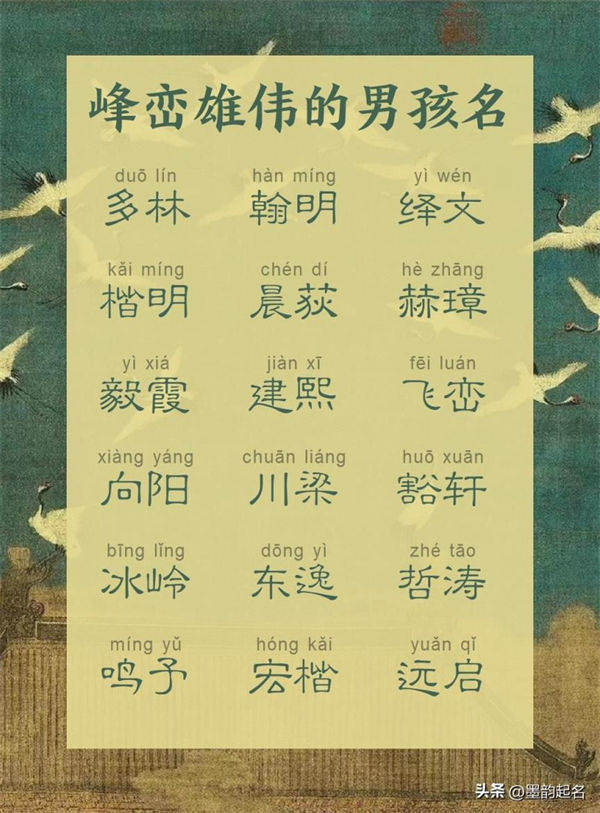 峰峦雄伟的男孩名
duō lín hàn míng yì wén
多林 翰明 绎文
kǎi míng chén dí hè zhāng
楷明 晨荻 赫璋
yì xiá jiàn xī fēi luán
毅霞 建熙 飞峦
xiàng yáng chuān liáng huō xuān
向阳 川梁 豁轩
bīng lǐng dōng yì zhé tāo
冰岭 东逸 哲涛
míng yǔ hóng kǎi yuǎn qǐ
鸣予 宏楷 远启
头条 @墨韵起名